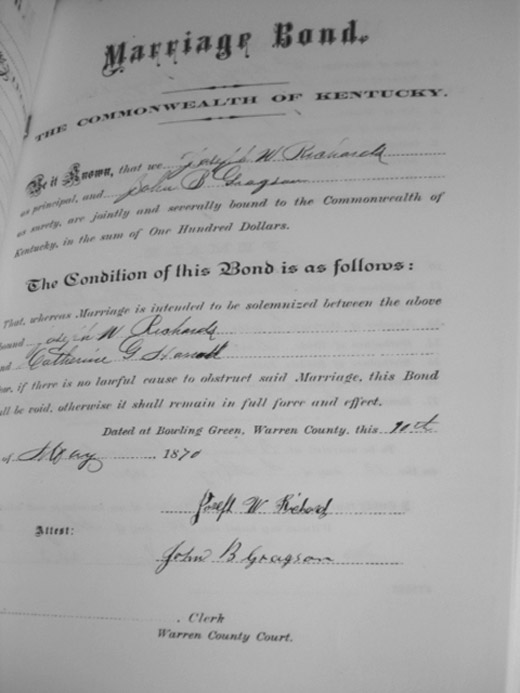 Marriage Bond.
THE COMMONWEALTH OF KENTUCKY.
Be it Known, that we Joseph W Richards
as principal, and John B Gragson
as surety, are jointly and severally bound to the Commonwealth of
Kentucky, in the sum of One Hundred Dollars.
The Condition of this Bond is as follows:
That, whereas Marriage is intended to be solemnized between the above
bound Joseph W. Richards
and Catherine G.
if there is no lawful cause to obstruct said Marriage, this Bond
be void, otherwise it shall remain in full force and effect.
Dated at Bowling Green, Warren County, this 10th
of May 1870
W Richard
Attest:
John B Gragson
Clerk
Warren County Court.